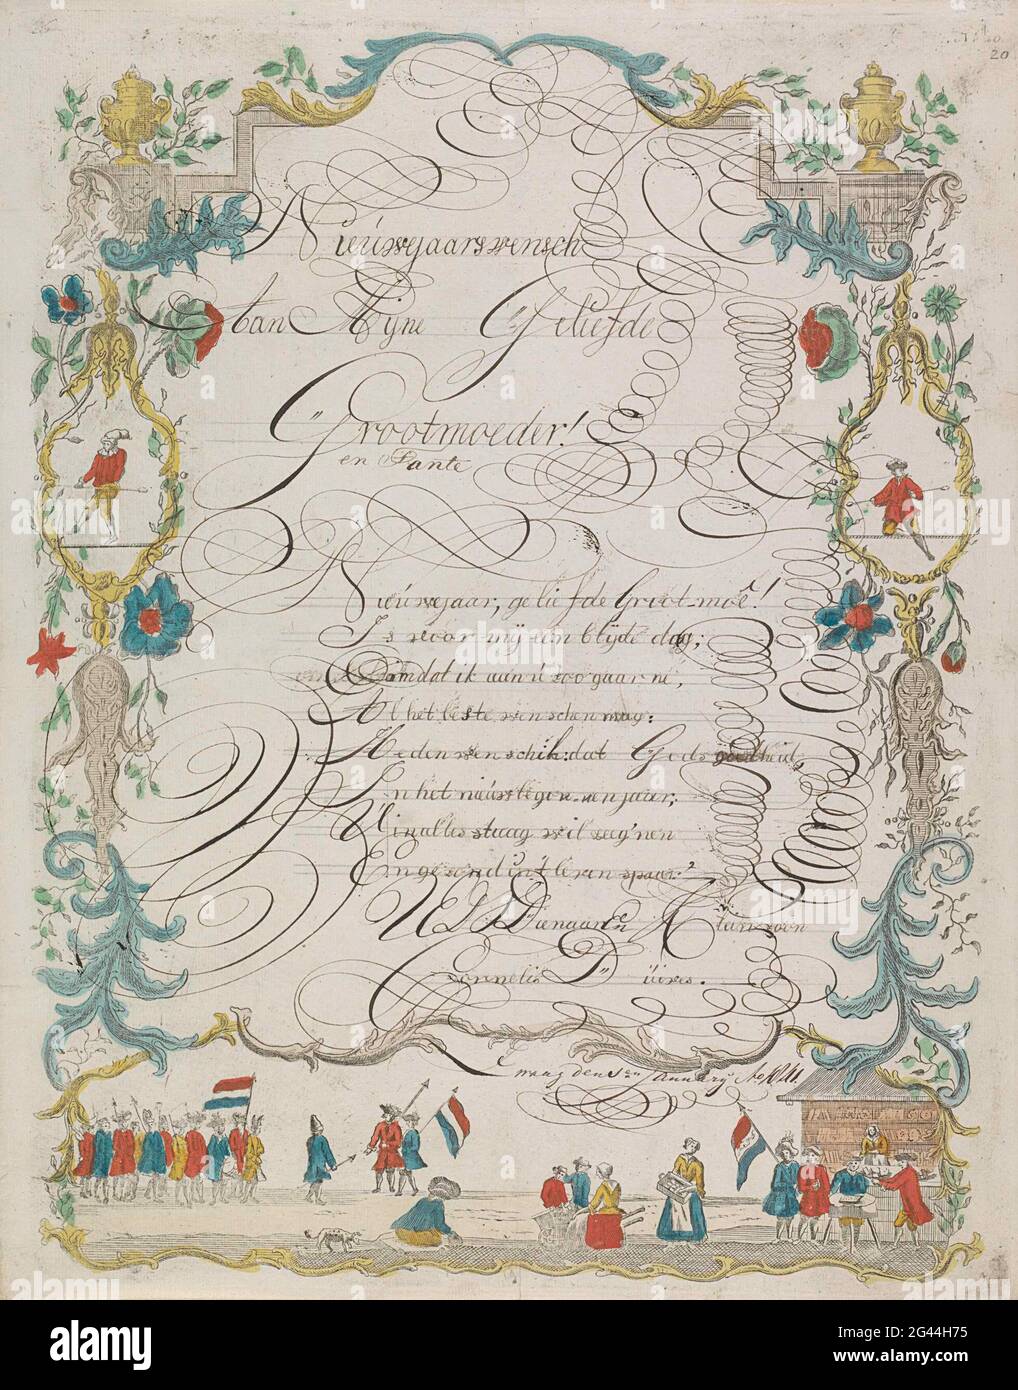 20
Nieúwejaarswensch
Aan Mijne Geliefde
Grootmoeder!
en Tante
Nieúwejaar, geliefde Groot moê!
Is voor mij een blijde dag;
Omdat ik aan ú zoo gaarne,
Al het beste wenschen mag:
Heden wensch ik: dat Gods goedheid,
In het nieúw
U in alles staag wil zeeg'nen
En gezond in't leven spaar?
UE Dienaar En Kleinzoon
Cornelis D
Januarij
alamy
Image ID: 2G44H75
www.alamy.com